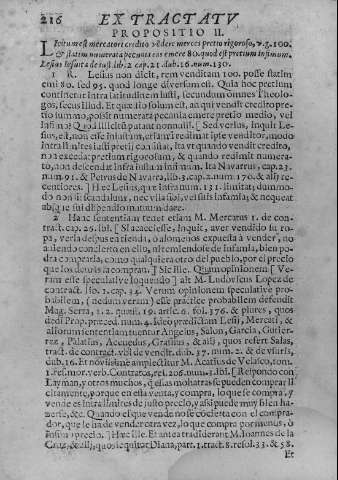 216 EX TRACTATV
PROPOSITIO II.
Licitum est mercatori credito vēdere merces pretio rigoroso, v.g. 100.
& statim numerata pecunia eas emere 80. quod est pretium infimum.
Lesius lib. 2 cap. 21. dub. 16. num. 130.
1 R. Lesius non dicit, rem venditam 100. posse statim
emi 80. sed 95. quod longe diversum est. Quia hoc pretium
continetur intra latitudinem iusti, secundum omnes Theolo-
gos, secus illud. Et quæstio solum est, an qui vendit credito pre-
tio summo, possit numerata pecunia emere pretio medio, vel
infimo? Quod illi licere putant nonnulli. [Sed verius, inquit Le-
sius, est, non esse iniustum, etiamsi redimat ipse venditor, modo
intra limites iusti pretij consistat, ita vt quando vendit credito,
non excedat pretium rigorosum, & quando redimit numera-
to, non descendat infra iustum infimum. Ita Navarrus, cap. 23.
num. 91. & Petrus de Navarra, lib. 3. cap. 2. num. 170. & alij re-
centiores.] Hæc Lesius, quæ infra num. 131. limitat; dummo-
do non sit scandalum, nec vlla lex, vel suis infamia; & neque at
absque sui dispendio mutuum dare.
2 Hanc sententiam tenet etiam M. Mercatus 1. de con-
tract. cap. 25. his. [Si acaeciesse, Inquit, aver vendido su ro-
pa, verla despues en tienda, o alomenos expuesta à vender, no
aviendo concierto en ello, ni temiendose de infamla, bien po-
dra comprarla, como qualquiera otro del pueblo, por el precio
que los demàs la compran.] Sic ille. Quam opinionem [Ve-
ram esse speculative loquendo] ait M. Ludovicus Lopez de
contract. lib. 1. cap. 34. Verum opinionem speculative pro-
babilem, (nedum veram) esse practice probabilem defendit
Mag. Serra, 1. 2. quæst. 19. artic. 6. fol. 376. & plures, quos
dedi Prop. præced. num. 4. Ideo prædictam Lesij, Mercati, &
aliorum sententiam tuentur Angelus, Salon, Garcia, Gutier-
rez, Palatius, Acevedus, Grafius, & alij, quos refert Salas,
tract. de contract. vbi de vendit. dub. 37. num. 2. & de vsuris,
dub. 16. Et novissime amplectitur M. Acasius de Velasco, tom.
1. res. mor. verb. Contratos, res. 206. num. 1. ibi. [Respondo con
Layman, y otros muchos, q̃ estas mohatras se pueden comprar li
citamente, porque en esta venta, y compra, lo que se compra, y
vende es intra limites de justo precio, y assi puede muy bien ha-
zerse, &c. Quando el que vende no se cōcierta con el compra-
dor, que le ha de vender otra vez, lo que compra por menos, ò
infimo precio.] Hæc ille. Et antea tradiderant M. Ioannes de la
Cruz, & alij, quos sequitur Diana, part. 1. tract. 8. resol. 33. & 58.
Et